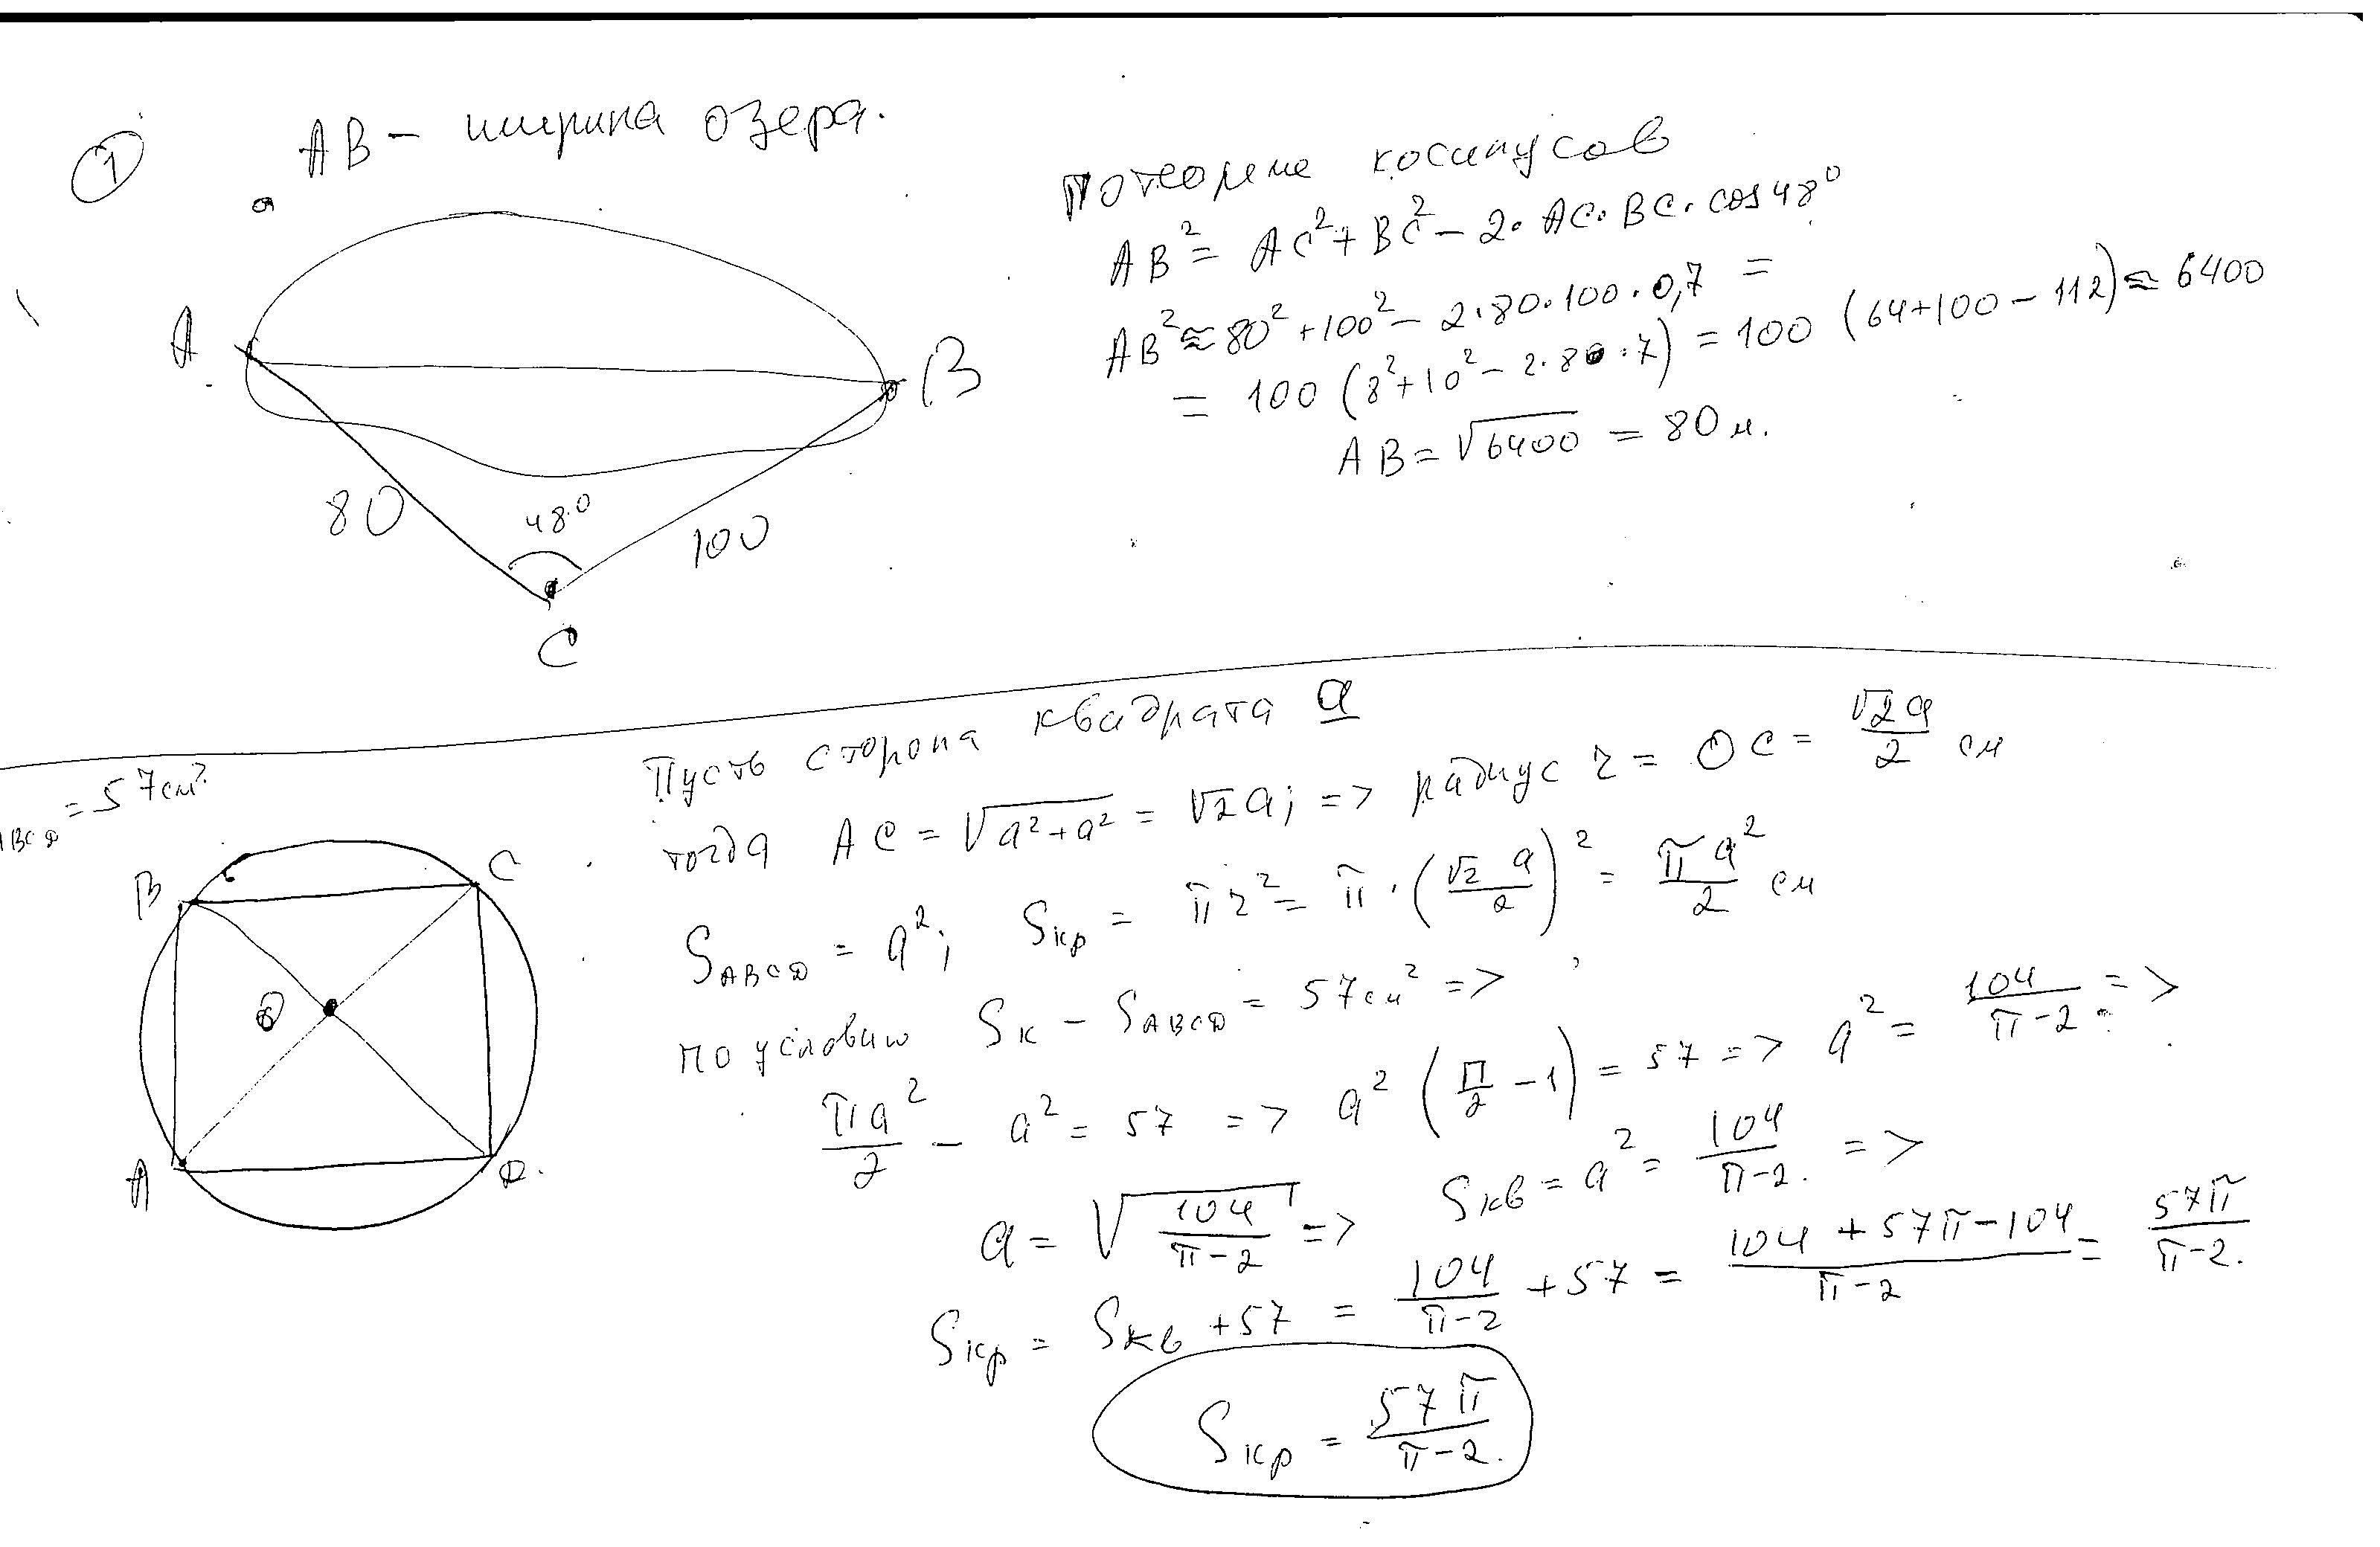 ① AB – ширина озера.
A
B
80
48°
100
C
По теореме косинусов
AB² = AC² + BC² – 2 · AC · BC · cos 48°
AB² ≈ 80² + 100² – 2 · 80 · 100 · 0,7 =
= 100 (8² + 10² – 2 · 80 · 7) = 100 (64 + 100 – 112) ≈ 6400
AB = √6400 = 80 м.
ABCD = 57 см²
B
C
O
A
D.
Пусть сторона квадрата a
тогда AC = √(a² + a²) = √2a; => радиус r = OC = √2a/2 см
S_ABCD = a²; S_кр = πr² = π · (√2 a/2)² = πa²/2 см
по условию S_к – S_ABCD = 57 см² =>
πa²/2 – a² = 57 => a² (π/2 – 1) = 57 => a² = 104/(π–2) =>
a = √(104/(π–2)) => S_кв = a² = 104/(π–2) =>
S_кр = S_кв + 57 = 104/(π–2) + 57 = (104 + 57π – 104)/(π–2) = 57π/(π–2).
S_кр = 57π/(π–2).